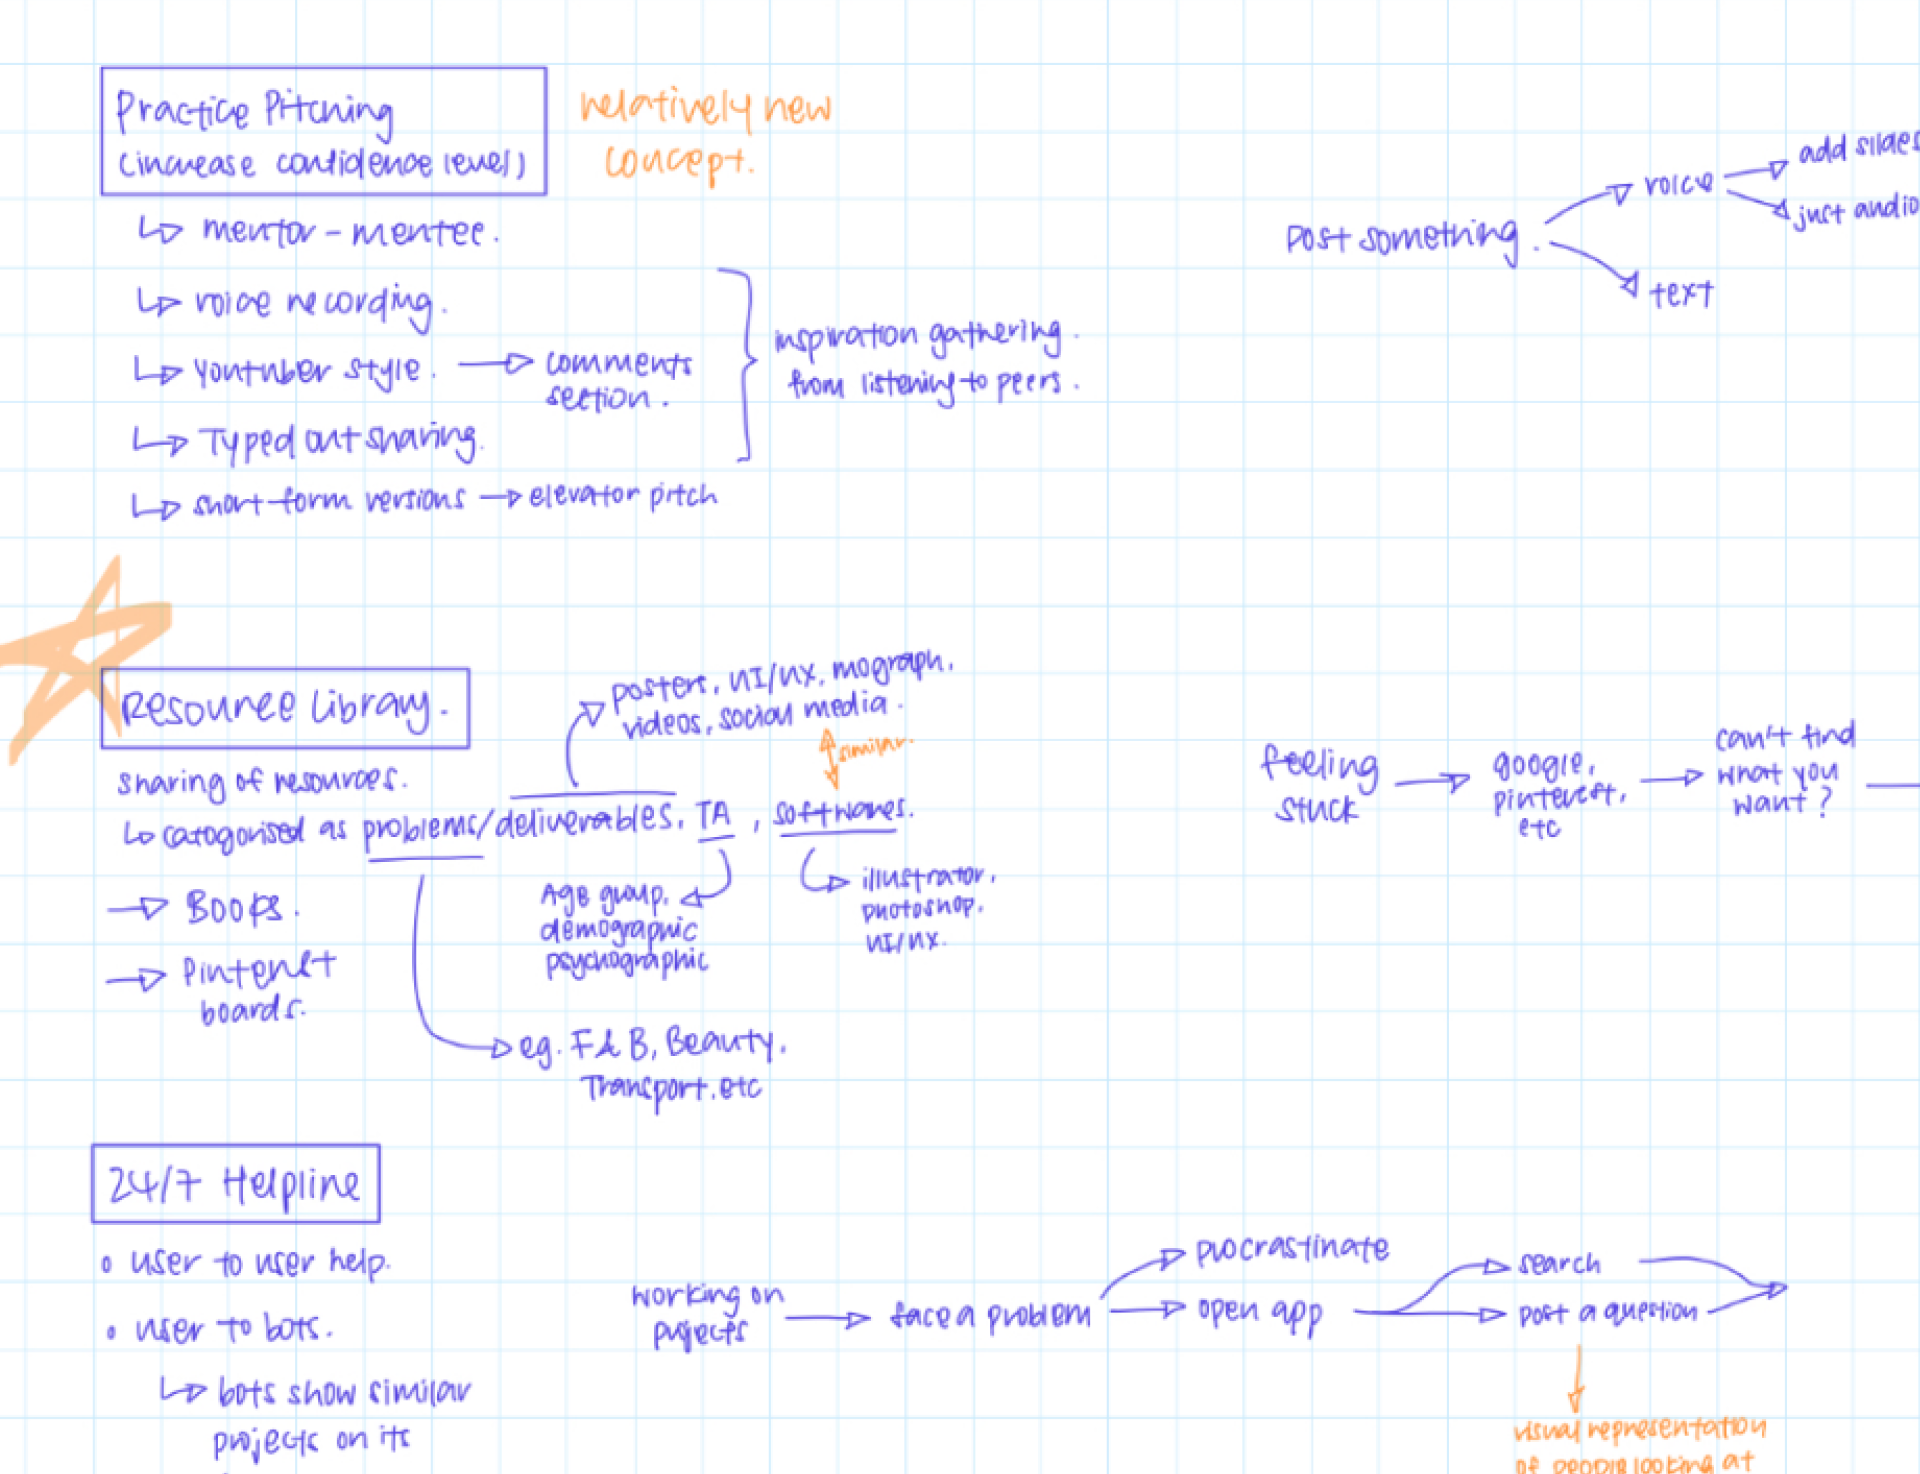 Practice Pitching
(increase confidence level)
relatively new
concept.
mentor - mentee.
voice recording.
Youtuber style.
comments
section.
Typed out sharing.
short-form versions
elevator pitch
inspiration gathering.
from listening to peers.
Post something.
voice
add slides
just audio
text
Resource Library.
sharing of resources.
catogorised as problems/deliverables, TA, softwares.
posters, UI/UX, mograph,
videos, social media.
similar.
Books.
Pinterest
boards.
Age group,
demographic
psychographic
illustrator,
photoshop,
UI/UX.
eg. F&B, Beauty,
Transport, etc
feeling
stuck
google,
pinterest,
etc
can't find
what you
want?
24/7 Helpline
user to user help.
user to bots.
bots show similar
projects on its
working on
projects
face a problem
procrastinate
open app
search
post a question
visual representation
of people looking at